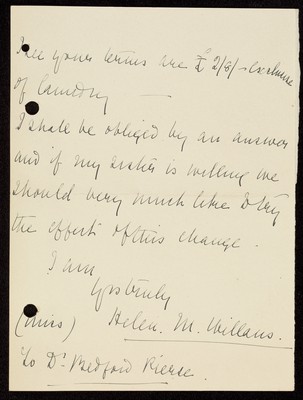 I see your terms are £2/8/- exclusive
of laundry —
I shall be obliged by an answer
and if my sister is willing we
should very much like to try
the effect of this change.
I am
Yrs truly
(Miss) Helen. M. Willans.
To Dr. Bedford Pierse.